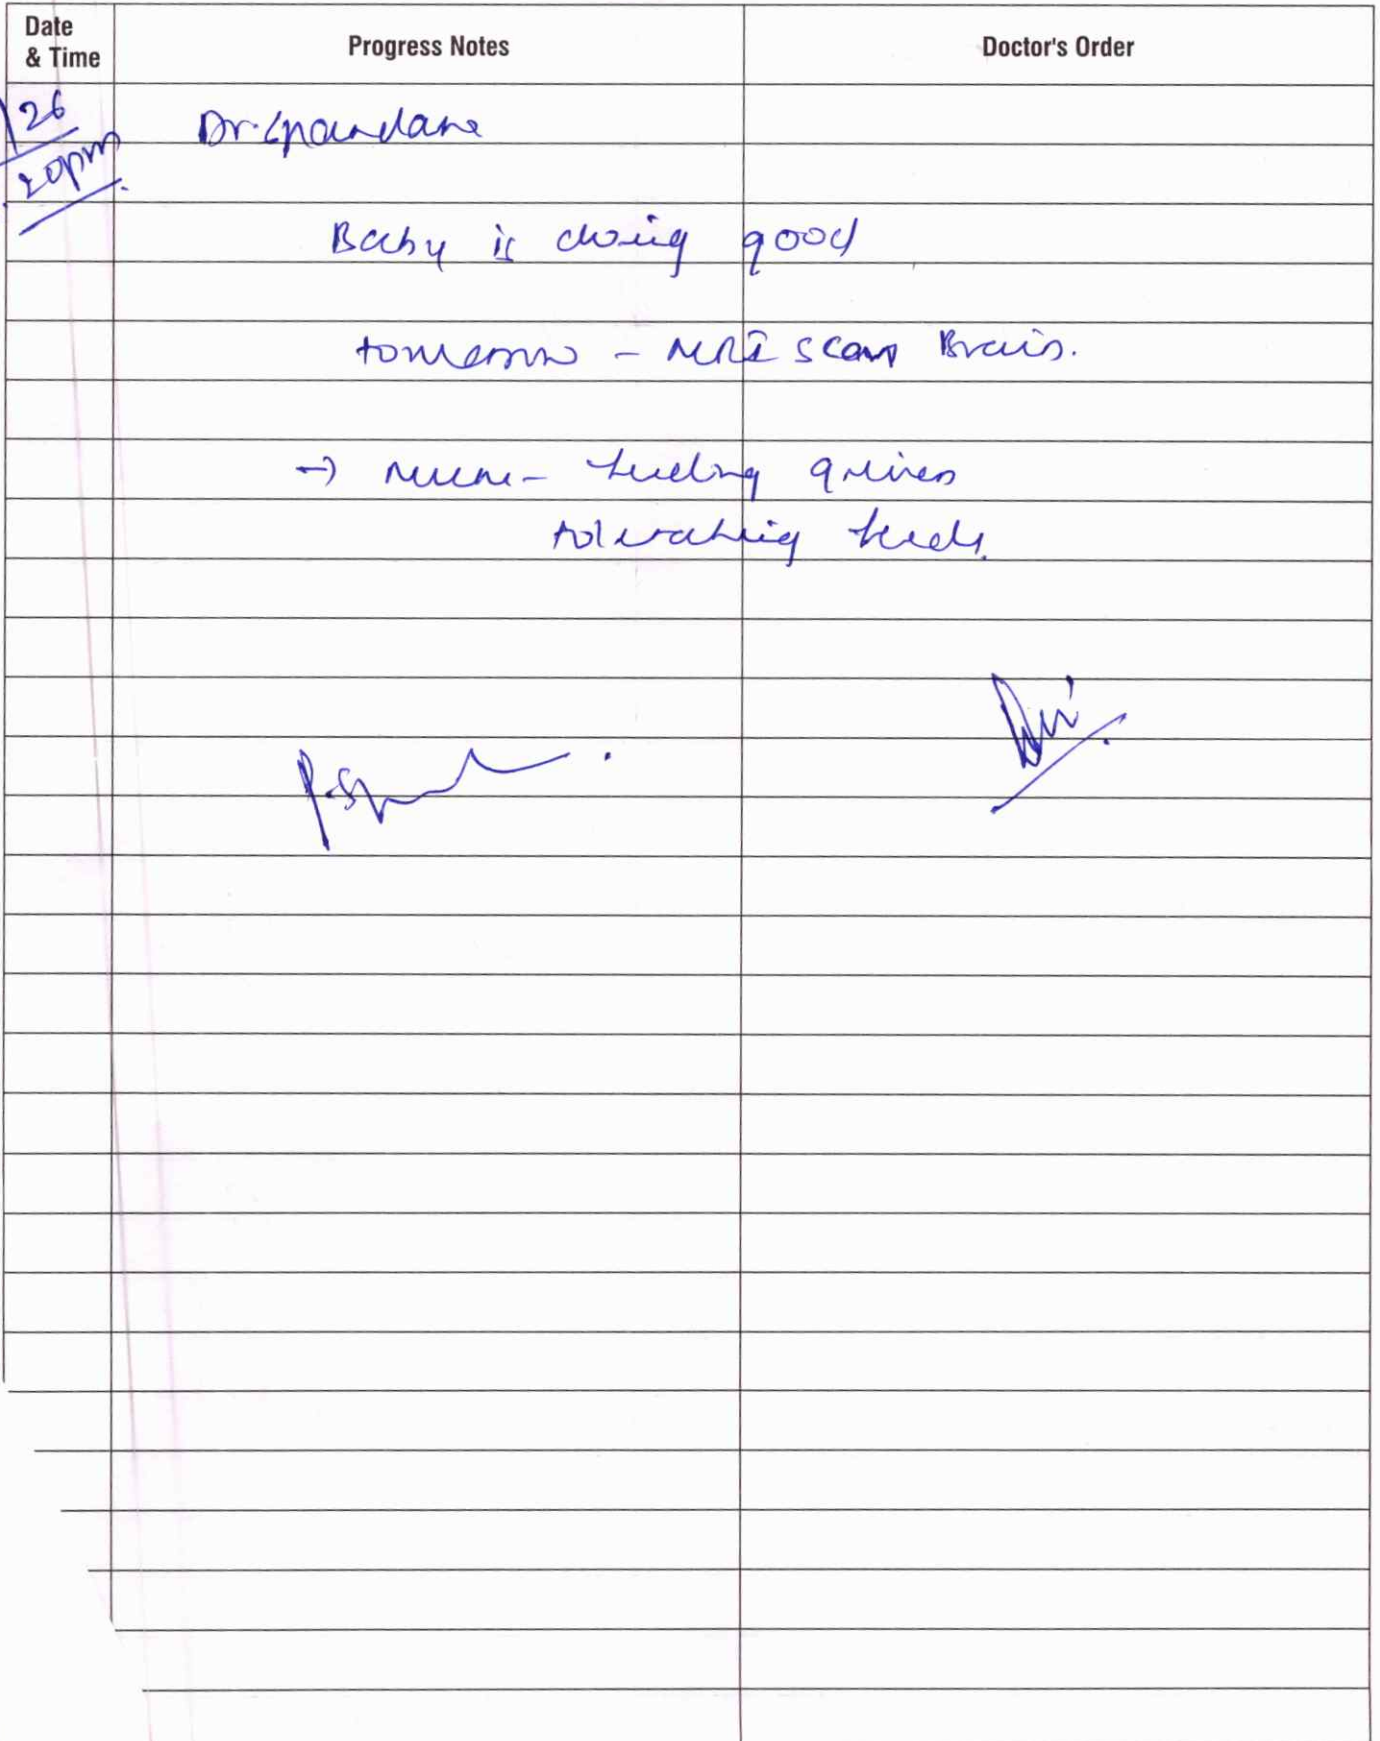 Date
& Time
Progress Notes
Doctor's Order
26
20pm
Dr.
Baby is doing good
tomorrow - MRI scan Brain.
→ feeding given
tolerating feeds.